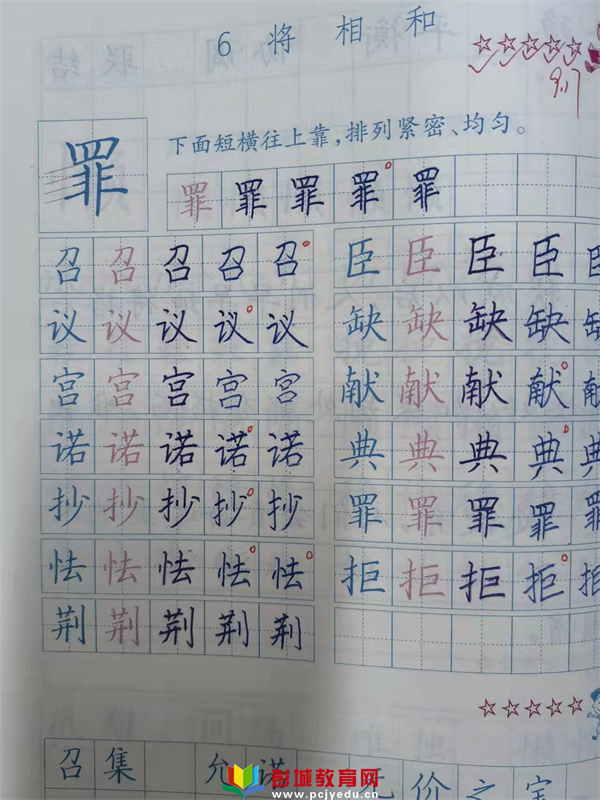 6 将相和
9.17
下面短横往上靠,排列紧密、均匀。
罪 罪 罪 罪 罪 罪
召 召 召 召 召 臣 臣 臣 臣 臣
议 议 议 议 议 缺 缺 缺 缺 缺
宫 宫 宫 宫 宫 献 献 献 献 献
诺 诺 诺 诺 诺 典 典 典 典 典
抄 抄 抄 抄 抄 罪 罪 罪 罪 罪
怯 怯 怯 怯 怯 拒 拒 拒 拒 拒
荆 荆 荆 荆 荆
召集 允诺 无价之宝
彭城教育网
www.pcjyedu.cn